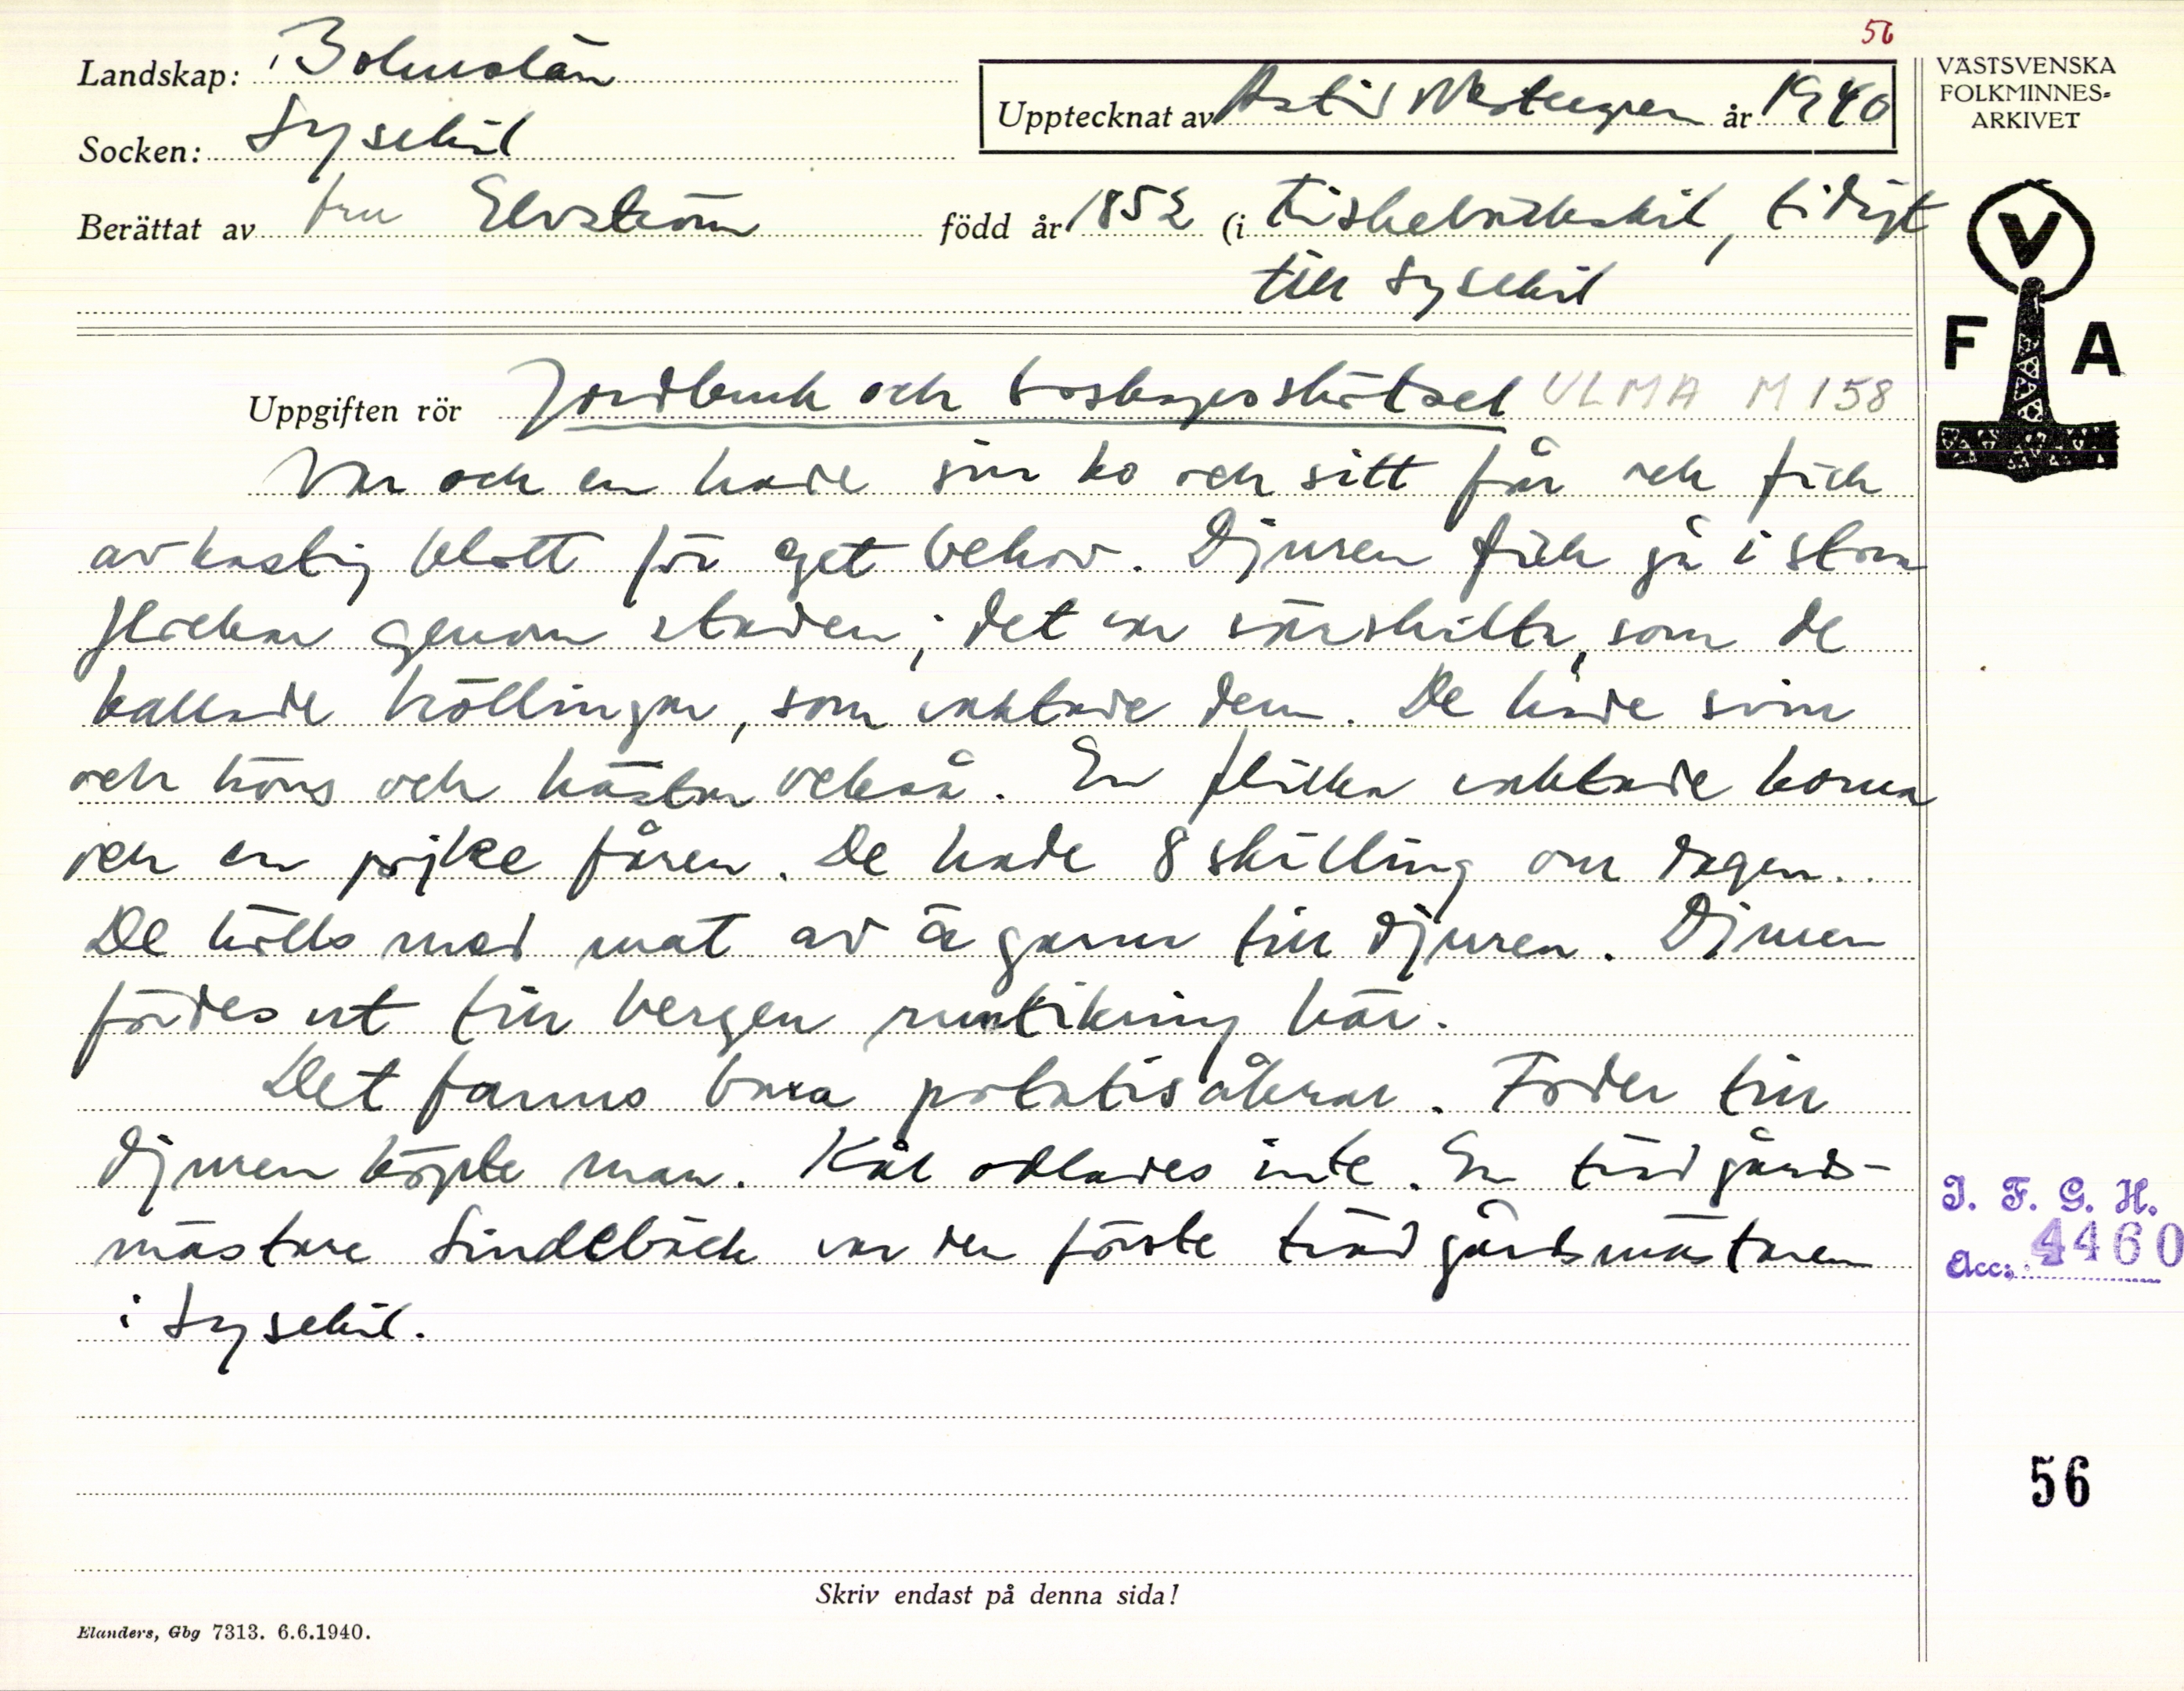 56
Landskap: Bohuslän
Socken: Lysekil
Upptecknat av Astrid Westergren år 1940
Berättat av fru Elvström född år 1852 (i Fiskebäckskil, tidigt
till Lysekil
VÄSTSVENSKA
FOLKMINNES-
ARKIVET
V
F A
Uppgiften rör Jordbruk och boskapsskötsel ULMA M 158
Var och en hade sin ko och sitt får och fick
avkastnig blott för eget behov. Djuren fick gå i stora
flockar genom staden; det var särskilta, som de
kallade höllingar, som vaktade dem. De hade svin
och höns och hästar också. En flicka vaktade korna
och en pojke fåren. De hade 8 skilling om dagen.
De hölls med mat av ägarna till djuren. Djuren
fördes ut till bergen runtikring här.
Det fanns bara potatisåkrar. Foder till
djuren köpte man. Kål odlades inte. En trädgårds-
mästare Lindebäck var den förste trädgårdsmästaren
i Lysekil.
I. F. G. H.
Acc: 4460
56
Skriv endast på denna sida!
Elanders, Gbg 7313. 6.6.1940.